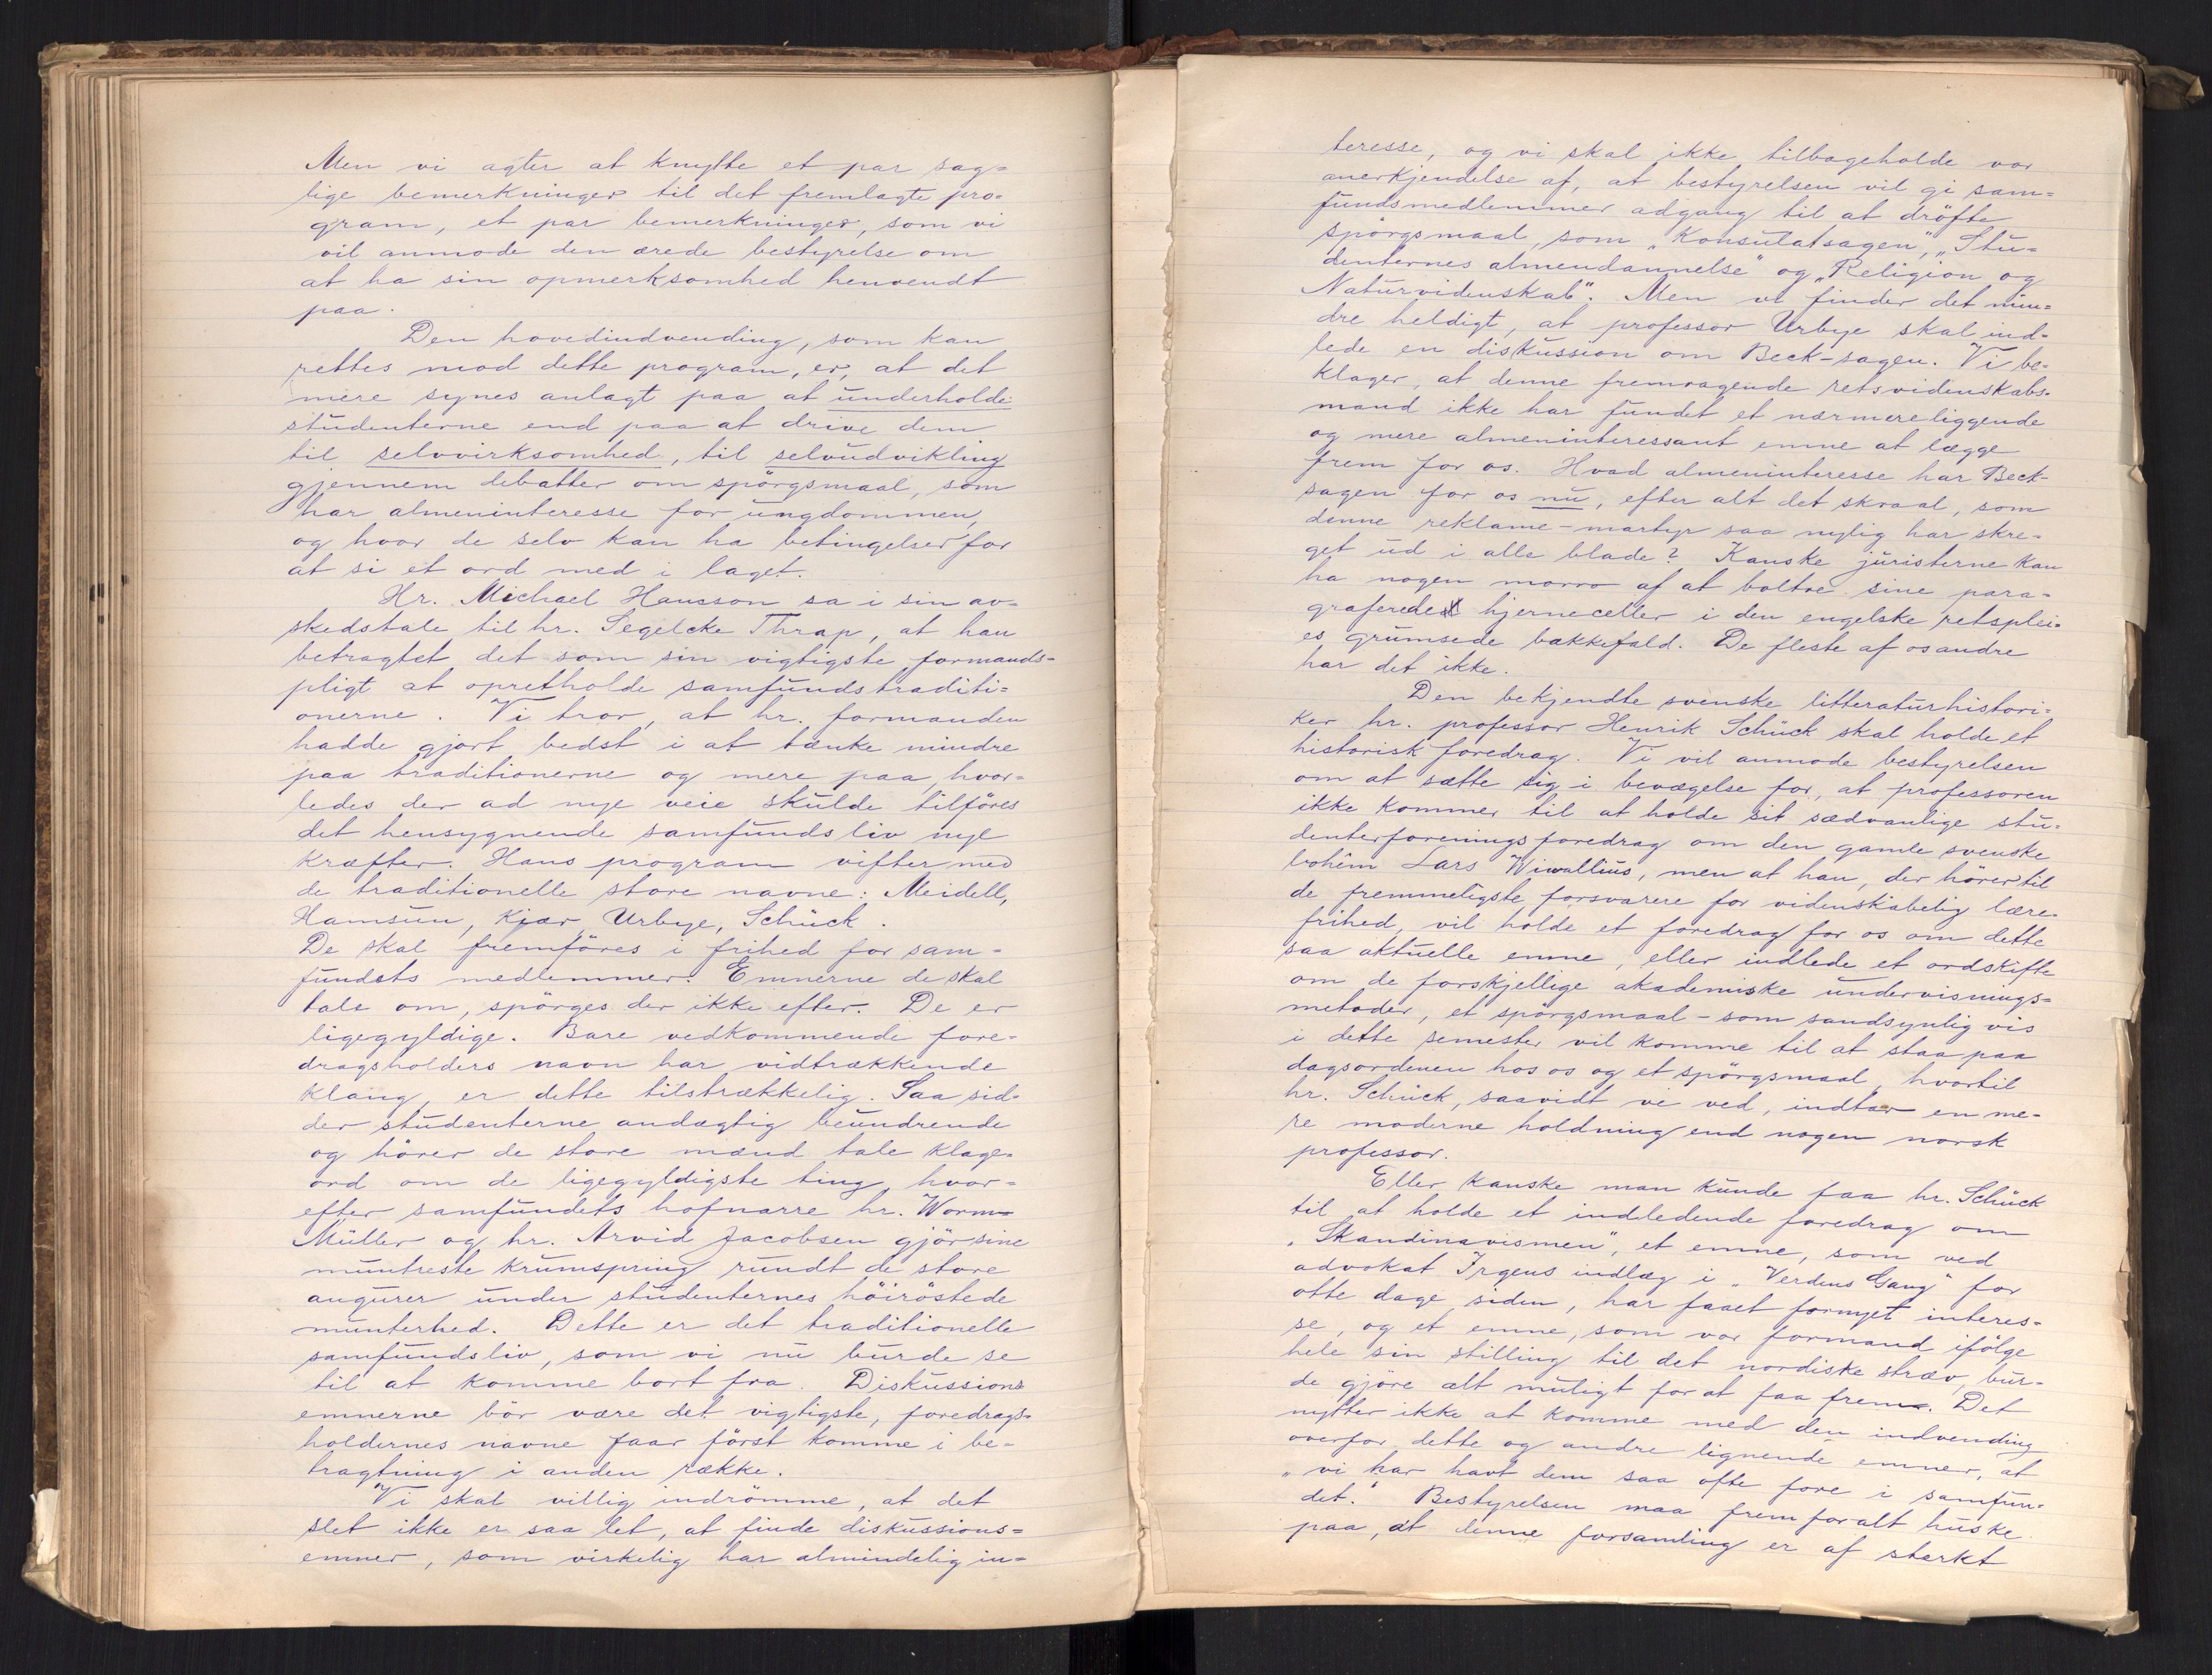 Men vi agter at knytte et par sag=
lige bemerkninger til det fremlagte pro=
gram, et par bemerkninger, som vi
vil anmode den ærede bestyrelse om
at ha sin opmerksomhed henvendt
paa.
Den hovedindvending, som kan
rettes mod dette program, er, at det
mere synes anlagt paa at underholde
studenterne end paa at drive dem
til selvvirksomhed, til selvudvikling
gjennem debatter om spörgsmaal, som
har almeninteresse for ungdommen,
og hvor de selv kan ha betingelser for
at si et ord med i laget.
Hr. Michael Hansson sa i sin av=
skedstale til hr. Segelcke Thrap, at han
betragtet det som sin vigtigste formands=
pligt at opretholde samfundstraditi=
onerne. Vi tror, at hr. formanden
hadde gjort bedst i at tænke mindre
paa traditionerne og mere paa, hvor=
ledes der ad nye veie skulde tilföres
det hensygnende samfundsliv nye
kræfter. Hans program vifter med
de traditionelle store navne: Meidell,
Hamsun, Kjær, Urbye, Schück.
De skal fremföres i frihed for sam=
fundets medlemmer. Emnerne de skal
tale om, spörges der ikke efter. De er
ligegyldige. Bare vedkommende fore=
dragsholders navn har vidtrækkende
klang, er dette tilstrækkelig. Saa sid=
der studenterne andægtig beundrende
og hörer de store mænd tale kloge
ord om de ligegyldigste ting, hvor=
efter samfundets hofnarre hr. Worm-
Müller og hr. Arvid Jacobsen gjör sine
muntreste krumspring rundt de store
augurer under studenternes höiröstede
munterhed. Dette er det traditionelle
samfundsliv, som vi nu burde se
til at komme bort fra. Diskussions
emnerne bör være det vigtigste, foredrags=
holdernes navne faar först komme i be=
tragtning i anden række.
Vi skal villig indrömme, at det
slet ikke er saa let, at finde diskussions=
emner, som virkelig har almindelig in=
teresse, og vi skal ikke tilbageholde vor
anerkjendelse af, at bestyrelsen vil gi sam=
fundsmedlemmer adgang til at dröfte
spörgsmaal, som „Konsulatsagen", „Stu=
denternes almendannelse" og „Religion og
Naturvidenskab". Men vi finder det min=
dre heldigt, at professor Urbye skal ind=
lede en diskussion om Beck-sagen. Vi be=
klager, at denne fremragende retsvidenskabs=
mand ikke har fundet et nærmereliggende
og mere almeninteressant emne at lægge
frem for os. Hvad almeninteresse har Beck-
sagen for os nu, efter alt det skraal, som
denne reklame-martyr saa nylig har skre=
get ud i alle blade? Kanske juristerne kan
ha nogen morro af at boltre sine para=
graferede hjerneceller i den engelske retsplei=
es grumsede bækkefald. De fleste af os andre
har det ikke.
Den bekjendte svenske litteraturhistori=
ker hr. professor Henrik Schück skal holde et
historisk foredrag. Vi vil anmode bestyrelsen
om at sætte sig i bevægelse for, at professoren
ikke kommer til at holde sit sædvanlige stu=
denterforeningsforedrag om den gamle svenske
bohêm Lars Wivallius, men at han, der hörer til
de fremmeligste forsvarere for videnskabelig lære=
frihed, vil holde et foredrag for os om dette
saa aktuelle emne, eller indlede et ordskifte
om de forskjellige akademiske undervisnings=
metoder, et spörgsmaal – som sandsynlig vis
i dette semester vil komme til at staa paa
dagsordenen hos os og et spörgsmaal, hvortil
hr. Schück, saavidt vi ved, indtar en me=
re moderne holdning end nogen norsk
professor.
Eller kanske man kunde faa hr. Schück
til at holde et indledende foredrag om
„Skandinavismen", et emne, som ved
advokat Irgens indlæg i „Verdens Gang" for
otte dage siden, har faaet fornyet interes=
se, og et emne, som vor formand ifölge
hele sin stilling til det nordiske stræv, bur=
de gjöre alt muligt for at faa frem. Det
nytter ikke at komme med den indvending
overfor dette og andre lignende emner, at
„vi har havt dem saa ofte fore i samfun=
det." Bestyrelsen maa fremforalt huske
paa, at denne forsamling er af sterkt